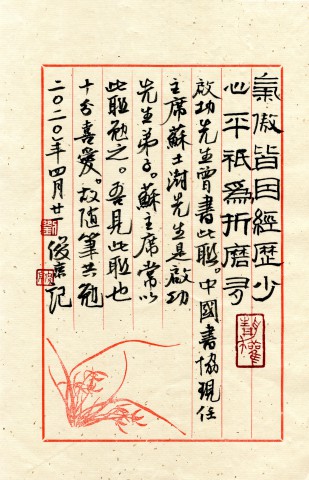 氣傲皆因經歷少
心平祇為折磨多
啟功先生曾書此聯。中國書協現任
主席蘇士澍先生是啟功
先生弟子。蘇主席常以
此聯勉之。吾見此聯也
十分喜愛。故隨筆共勉
二〇二〇年四月廿
記